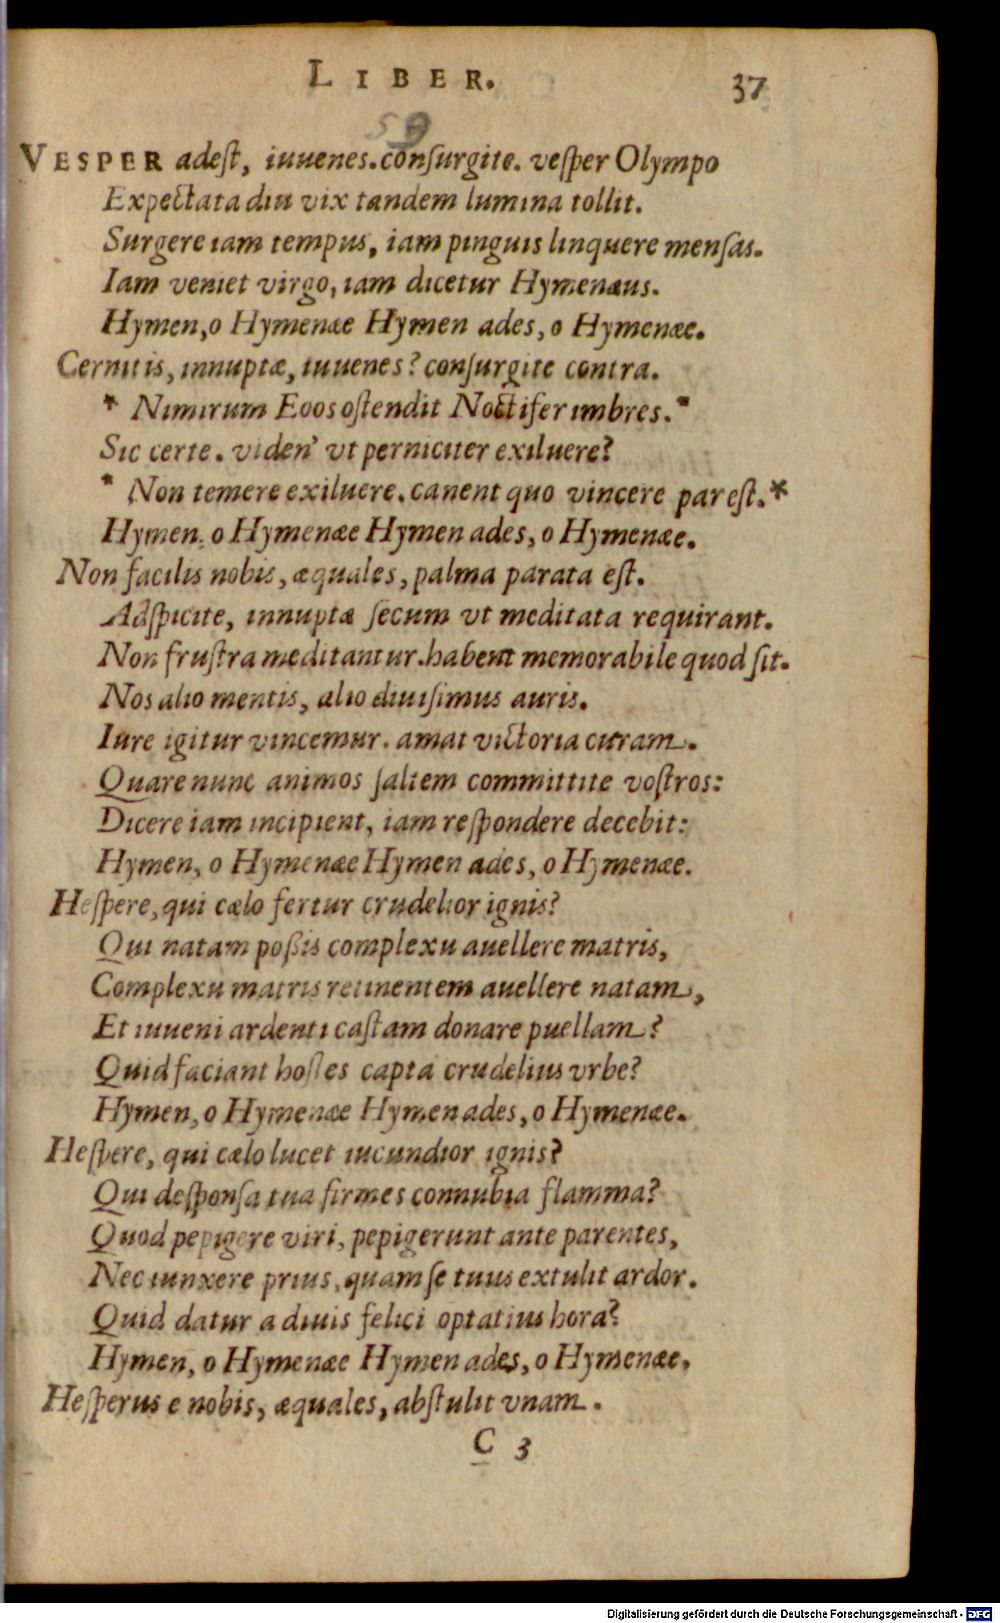 LIBER. 37
59
VESPER adeſt, iuuenes. conſurgite. veſper Olympo
Expectata diu vix tandem lumina tollit.
Surgere iam tempus, iam pinguis linquere menſas.
Iam veniet virgo, iam dicetur Hymenæus.
Hymen, o Hymenæe Hymen ades, o Hymenæe.
Cernitis, innuptæ, iuuenes? conſurgite contra.
* Nimirum Eoos oſtendit Noctifer imbres. *
Sic certe. viden' vt perniciter exiluere?
* Non temere exiluere. canent quo vincere par eſt. *
Hymen. o Hymenæe Hymen ades, o Hymenæe.
Non facilis nobis, æquales, palma parata eſt.
Adſpicite, innuptæ ſecum vt meditata requirant.
Non fruſtra meditantur. habent memorabile quod ſit.
Nos alio mentis, alio diuiſimus auris.
Iure igitur vincemur. amat victoria curam.
Quare nunc animos ſaltem committite voſtros:
Dicere iam incipient, iam reſpondere decebit:
Hymen, o Hymenæe Hymen ades, o Hymenæe.
Heſpere, qui cælo fertur crudelior ignis?
Qui natam poßis complexu auellere matris,
Complexu matris retinentem auellere natam,
Et iuueni ardenti caſtam donare puellam?
Quid faciant hoſtes capta crudelius vrbe?
Hymen, o Hymenæe Hymen ades, o Hymenæe.
Heſpere, qui cælo lucet iucundior ignis?
Qui deſponſa tua firmes connubia flamma?
Quod pepigere viri, pepigerunt ante parentes,
Nec iunxere prius, quam ſe tuus extulit ardor.
Quid datur a diuis felici optatius hora?
Hymen, o Hymenæe Hymen ades, o Hymenæe.
Heſperus e nobis, æquales, abſtulit vnam.
C 3
Digitalisierung gefördert durch die Deutsche Forschungsgemeinschaft - DFG